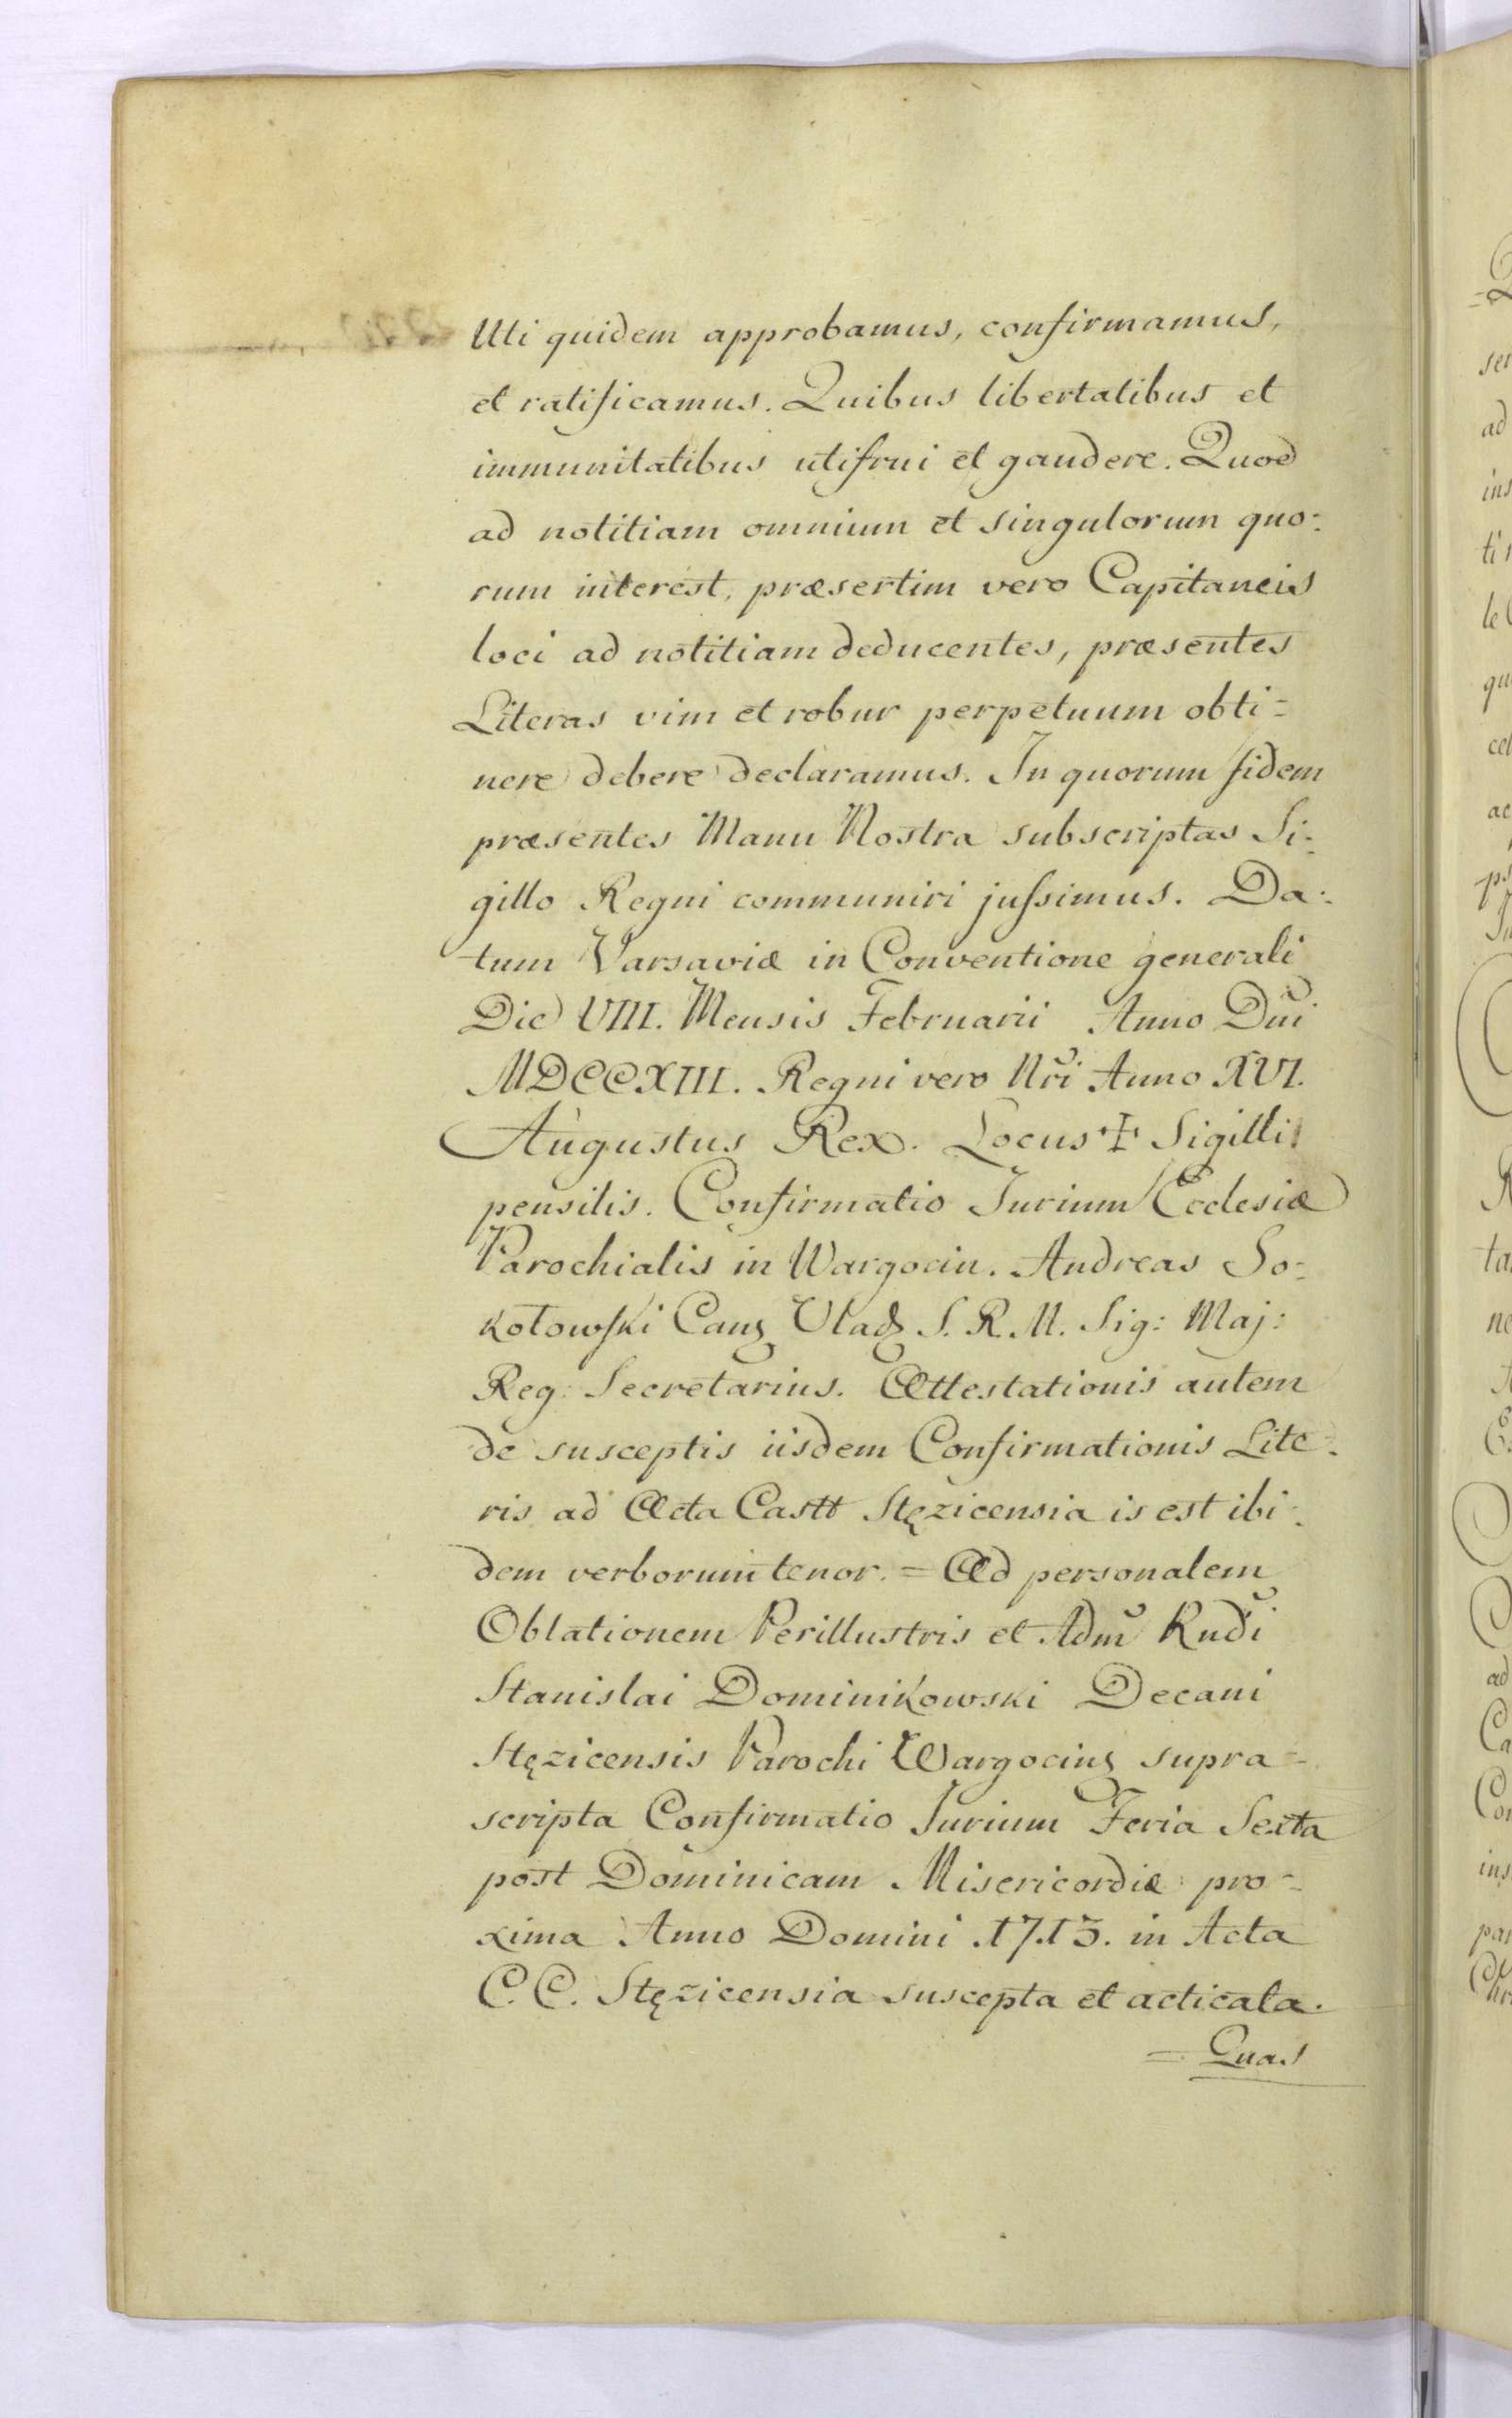 Uti quidem approbamus, confirmamus,
et ratificamus. Quibus libertatibus et
immunitatibus utifrui et gaudere. Quod
ad notitiam omnium et singulorum quo=
rum interest, præsertim vero Capitaneis
loci ad notitiam deducentes, præsentes
Literas vim et robur perpetuum obti=
nere debere declaramus. In quorum fidem
præsentes Manu Nostra subscriptas Si=
gillo Regni communiri jussimus. Da=
tum Varsaviæ in Conventione generali
Die VIII. Mensis Februarii Anno Dni
MDCCXIII. Regni vero Nri Anno XVI.
Augustus Rex. Locus ✝ Sigilli
pensilis. Confirmatio Jurium Ecclesiæ
Parochialis in Wargocin. Andreas So=
kołowski Canz Vladz S. R. M. Sig: Maj:
Reg: Secretarius. Attestationis autem
de susceptis iisdem Confirmationis Lite=
ris ad Acta Castt Stęzicensia is est ibi=
dem verborum tenor. = Ad personalem
Oblationem Perillustris et Adm Rudi
Stanislai Dominikowski Decani
Stęzicensis Parochi Wargocinz supra=
scripta Confirmatio Jurium Feria Sexta
post Dominicam Misericordiæ pro=
xima Anno Domini 1713. in Acta
C. C. Stęzicensia suscepta et acticata.
= Quas